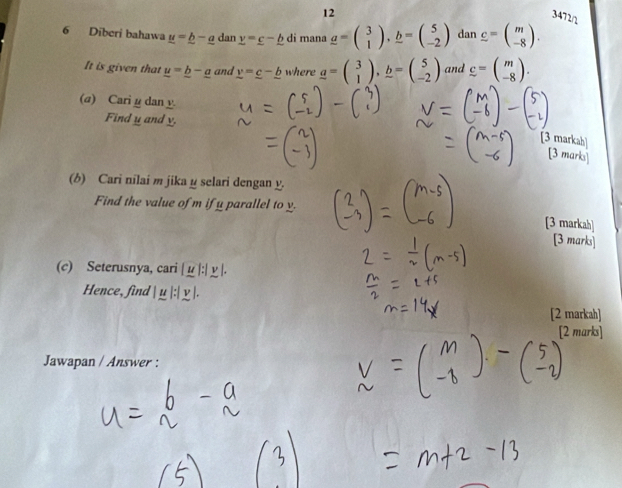 12
3472/2
6 Diberi bahawa u = b − a dan v = c − b di mana a = (3 1), b = (5 −2) dan c = (m −8).
It is given that u = b − a and v = c − b where a = (3 1), b = (5 −2) and c = (m −8).
(a) Cari u dan v.
Find u and v.
u = (5 −2) − (3 1)
= (2 −3)
v = (m −8) − (5 −2)
= (m−5 −6)
[3 markah]
[3 marks]
(b) Cari nilai m jika u selari dengan v.
Find the value of m if u parallel to v.
(2 −3) = (m−5 −6)
[3 markah]
[3 marks]
2 = 1/2 (m−5)
(c) Seterusnya, cari | u |:| v |.
Hence, find | u |:| v |.
m/2 = 2+5
m = 14
[2 markah]
[2 marks]
Jawapan / Answer :
v = (m −8) − (5 −2)
u = b − a
= m+2 −13
(5 (3